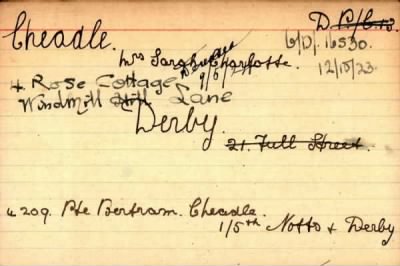 Cheadle. D.P/C.13.
Mrs Sarah Charlotte. 6/D/. 16530.
9/6/21 12/10/23.
4. Rose Cottage
Windmill Hill Lane
Derby.
21. Full Street.
4209. Pte Bertram. Cheadle.
1/5th Notts & Derby